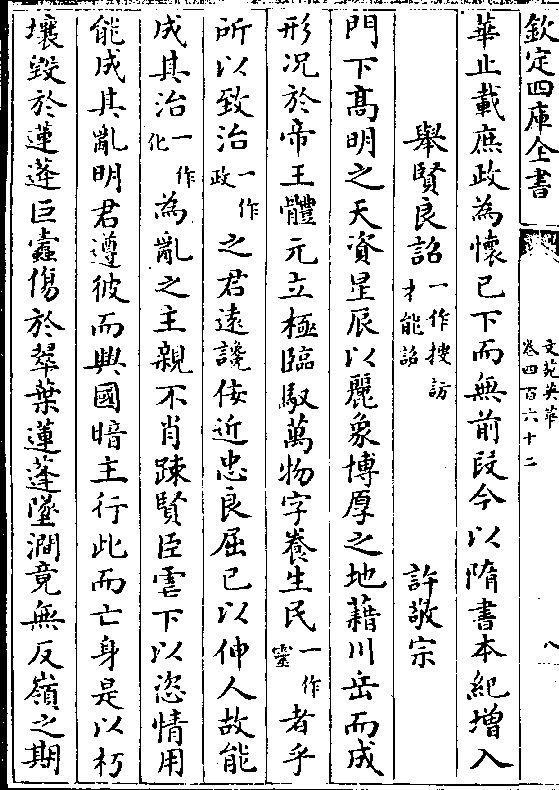 欽定四庫全書
文苑英華
卷四百六十二
八
華止載庶政為懷已下而無前段今以隋書本紀增入
舉賢良詔一作搜訪才能詔 許敬宗
門下髙明之天資星辰以麗象博厚之地藉川岳而成
形况於帝王體元立極臨馭萬物字養生民一作靈者乎
所以致治一作政之君遠讒佞近忠良屈己以伸人故能
成其治一作化為亂之主親不肖踈賢臣虐下以恣情用
能成其亂明君遵彼而興國暗主行此而亡身是以朽
壤毁於蓮蓬巨蠧傷於翠葉蓮蓬墜澗竟無反嶺之期